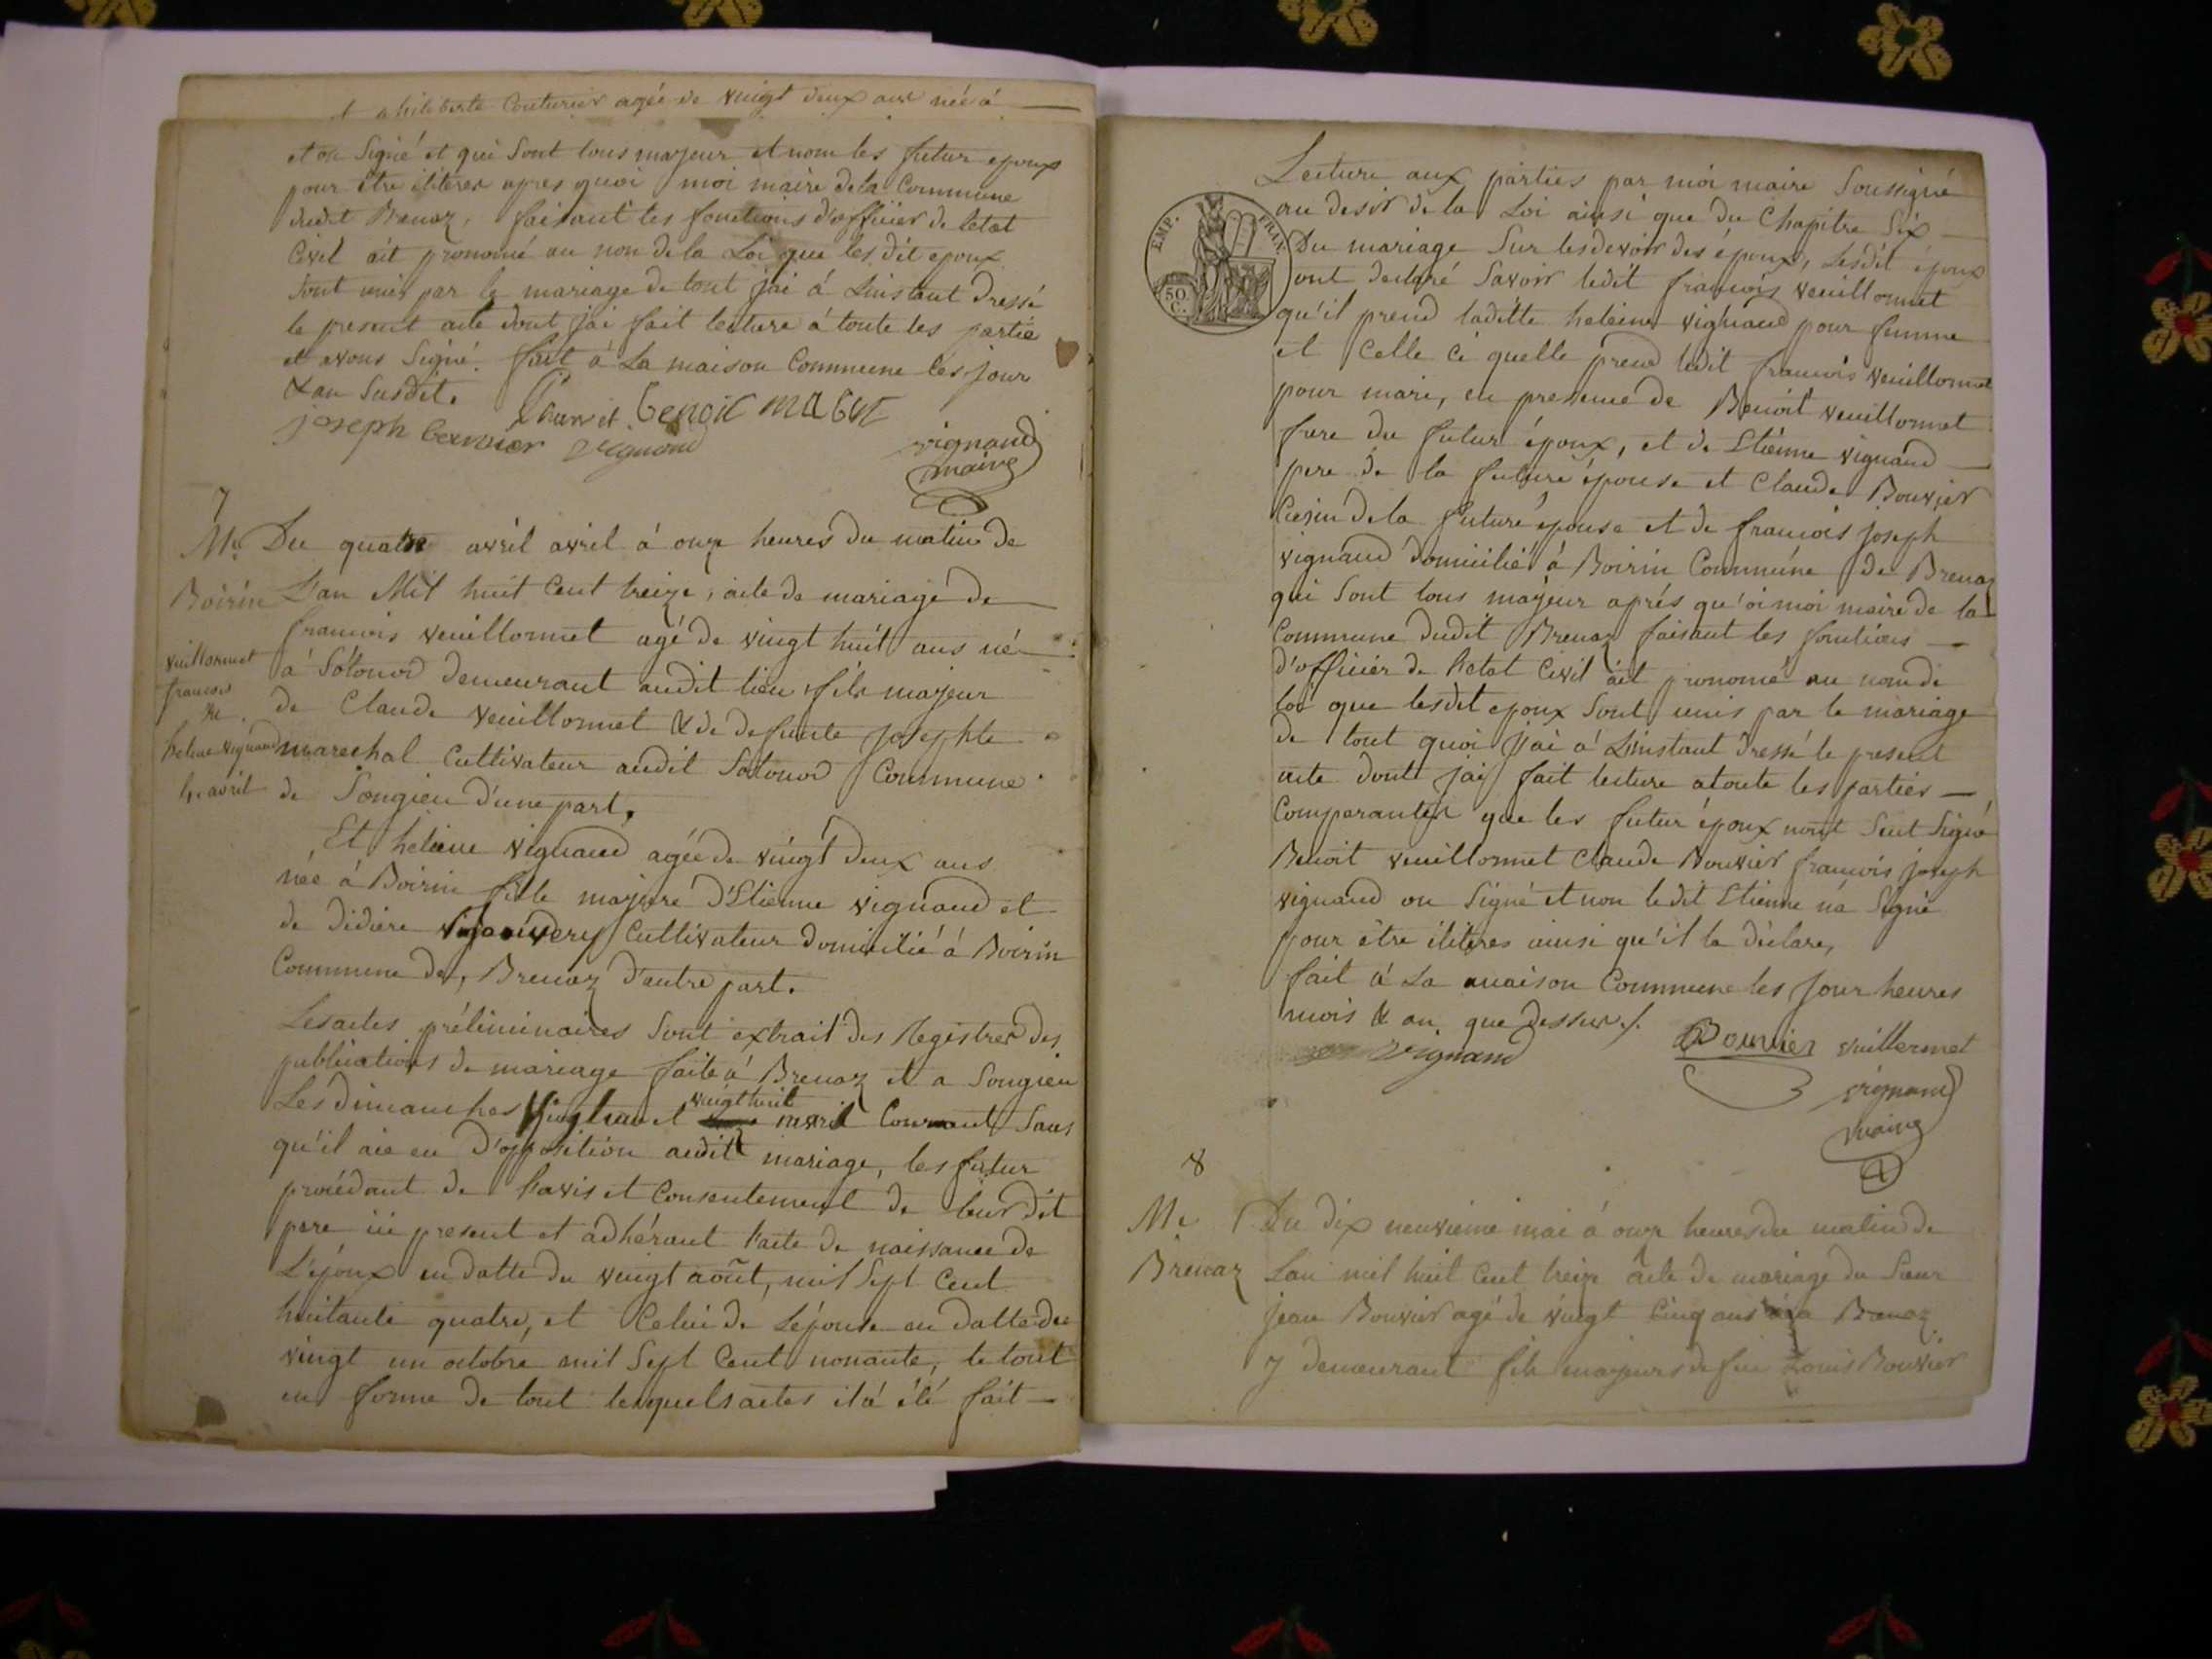 et philiberte Couturier agée de vingt deux ans née à
et on Signé et qui Sont tous majeur et nom les futur epoux
pour être iliterer apres quoi moi maire de la Commune
dudit Brenaz, faisant les fonctions d'officier de letat
Civil ait prononcé au non de la Loi que les dit epoux
Sont unis par le mariage de tout jai á Linstant dressé
le present acte dont jai fait lecture á toute les partie
et avons Signé. fait á La maison Commune les jour
& an Susdit.
benoit
joseph vignand
vignand
maire
7
Me Du quatre avril avril á onze heures du matin de
Boirin L'an Mil huit Cent treize, acte de mariage de
francois veuillermet agé de vingt huit ans né
á Sotonod demeurant audit lieu fils majeur
de Claude veuillermet & de defunte josephte
marechal Cultivateur audit Sotonod Commune
de Songieu d'une part.
vuillermet
francois
et
helene vignand
4. avril
Et heleine vignand agée de vingt deux ans
née á Boirin fille majeure d'Etienne vignand et
de didière Cultivateur domicilié á Boirin
Commune de, Brenaz d'autre part.
Les actes préliminaires Sont extrait des Registres des
publications de mariage faite á Brenaz et a Songieu
vingt huit
Les dimanches vingt un et Courant Sans
qu'il aie eu d'opposition audit mariage, les futur
procédant de l'avis et Consentement de leur dit
pere ici present et adhérant l'acte de naissance de
L'époux en datte du vingt août, mil Sept Cent
huitante quatre, et Celui de Lépouse en datte du
vingt un octobre mil Sept Cent nonante, le tout
en forme de tout lesquels actes il á été fait
Lecture aux parties par moi maire Soussigné
EMP. FRAN.
50
C.
au desir de la Loi ainsi que du Chapitre Six
Du mariage Sur les devoir des époux, Lesdit époux
ont declaré Savoir ledit francois veuillermet
qu'il prend laditte heleine vignand pour femme
et Celle Ci quelle prend ledit francois veuillermet
pour mari, en presence de Benoit veuillermet
frere du futur époux, et de Etienne vignand
pere de la future épouse et Claude Bouvier
Cusin de la future épouse et de francois joseph
vignand domicilié á Boirin Commune de Brenaz
qui Sont tous majeur aprés qu'oi moi maire de la
Commune dudit Brenaz faisant les fonctions
d'officier de l'etat Civil ait prononcé au nom de
loi que lesdit epoux Sont unis par le mariage
de tout quoi jai á Linstant dressé le present
acte dont jai fait lecture atoute les parties
Comparantes que les futur époux nont Seut Signé
Benoit veuillermet Claude Bouvier francois joseph
vignand on Signé et non ledit Etienne ná Signé
pour être iliteres ainsi qu'il la déclare,
fait á La maison Commune les Jour heures
mois & an que dessus ./.
vignand Bouvier vuillermet
vignand
maire
8
Me Du dix neuvieme mai á onze heures du matin de
Brenaz Lan mil huit Cent treize acte de mariage du Sieur
jean Bouvier agé de vingt Cinq ans Brenaz
y demeurant fils majeurs de feu Louis Bouvier